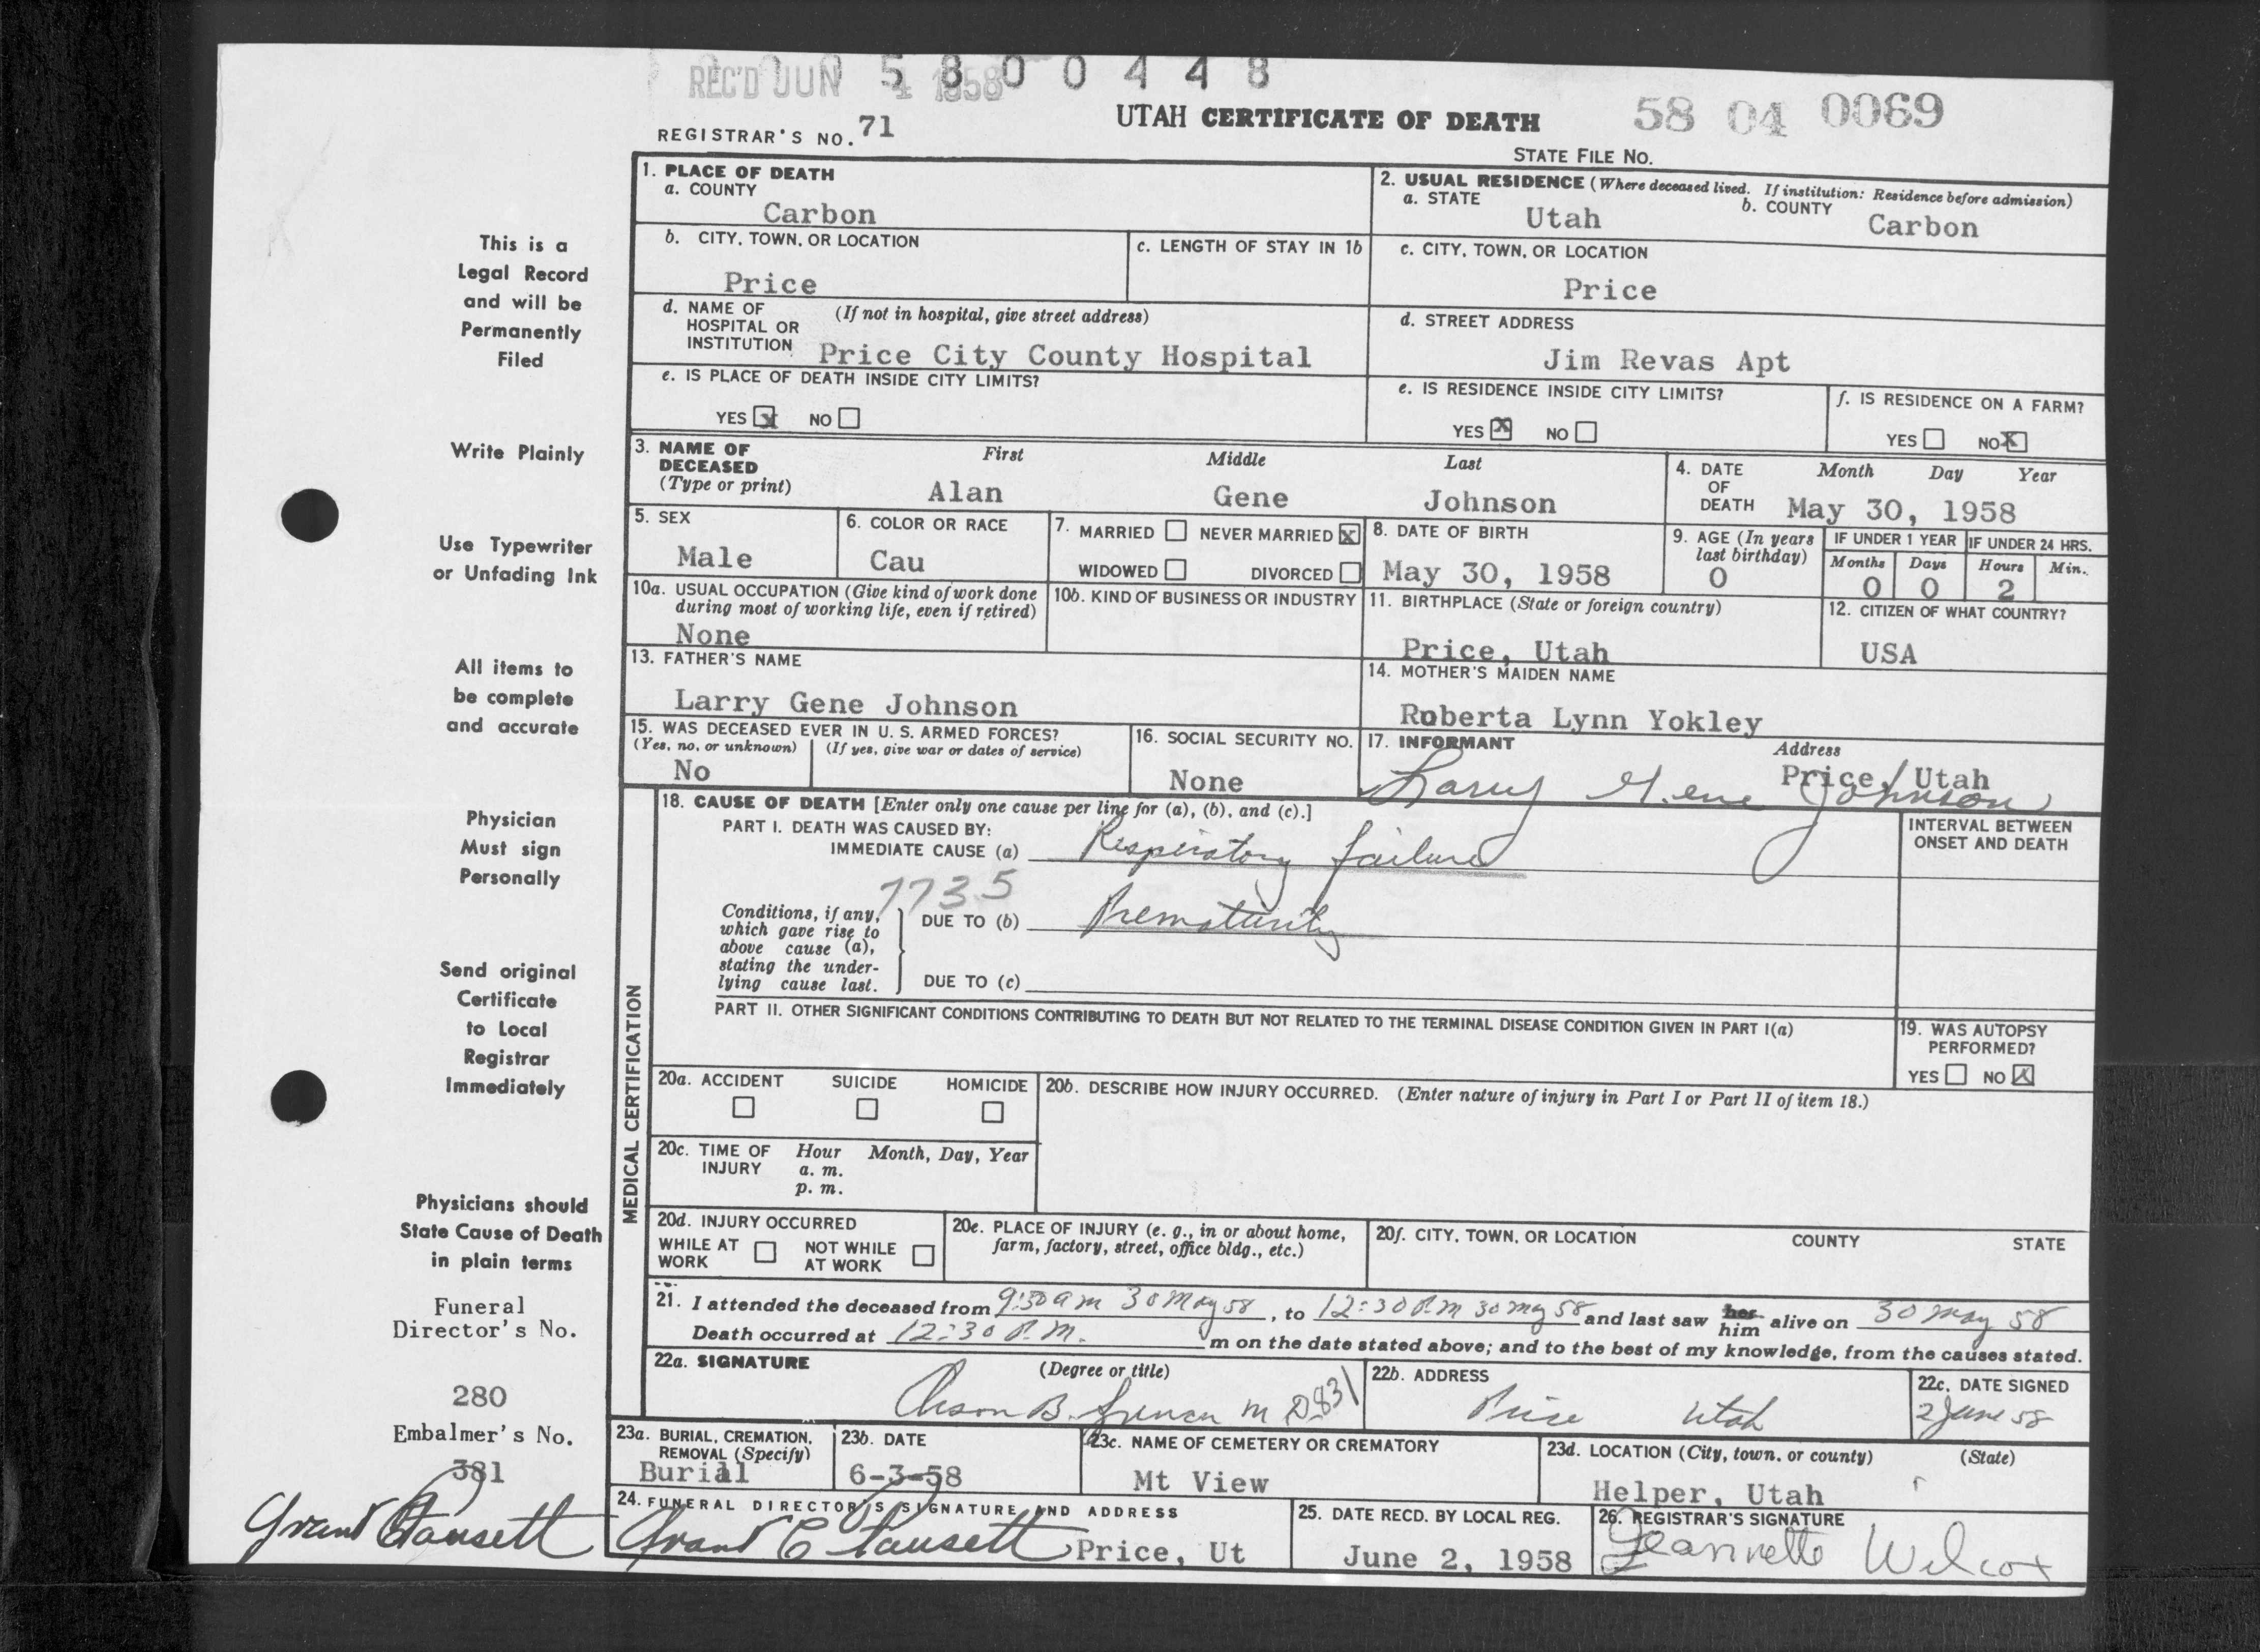 REC'D JUN 4 1958
5 8 0 0 4 4 8
REGISTRAR'S NO. 71
UTAH CERTIFICATE OF DEATH
58 04 0069
STATE FILE NO.
This is a
Legal Record
and will be
Permanently
Filed
Write Plainly
Use Typewriter
or Unfading Ink
All items to
be complete
and accurate
Physician
Must sign
Personally
Send original
Certificate
to Local
Registrar
Immediately
Physicians should
State Cause of Death
in plain terms
Funeral
Director's No.
280
Embalmer's No.
381
Grant C Fausett
1. PLACE OF DEATH
a. COUNTY
Carbon
2. USUAL RESIDENCE (Where deceased lived. If institution: Residence before admission)
a. STATE
Utah
b. COUNTY
Carbon
b. CITY, TOWN, OR LOCATION
Price
c. LENGTH OF STAY IN 1b
c. CITY, TOWN, OR LOCATION
Price
d. NAME OF (If not in hospital, give street address)
HOSPITAL OR
INSTITUTION Price City County Hospital
d. STREET ADDRESS
Jim Revas Apt
e. IS PLACE OF DEATH INSIDE CITY LIMITS?
YES x NO
e. IS RESIDENCE INSIDE CITY LIMITS?
YES X NO
f. IS RESIDENCE ON A FARM?
YES NO X
3. NAME OF
DECEASED
(Type or print)
First Middle Last
Alan Gene Johnson
4. DATE
OF
DEATH
Month Day Year
May 30, 1958
5. SEX
Male
6. COLOR OR RACE
Cau
7. MARRIED NEVER MARRIED X
WIDOWED DIVORCED
8. DATE OF BIRTH
May 30, 1958
9. AGE (In years
last birthday)
0
IF UNDER 1 YEAR IF UNDER 24 HRS.
Months Days Hours Min.
0 0 2
10a. USUAL OCCUPATION (Give kind of work done
during most of working life, even if retired)
None
10b. KIND OF BUSINESS OR INDUSTRY
11. BIRTHPLACE (State or foreign country)
Price, Utah
12. CITIZEN OF WHAT COUNTRY?
USA
13. FATHER'S NAME
Larry Gene Johnson
14. MOTHER'S MAIDEN NAME
Roberta Lynn Yokley
15. WAS DECEASED EVER IN U. S. ARMED FORCES?
(Yes, no, or unknown) (If yes, give war or dates of service)
No
16. SOCIAL SECURITY NO.
None
17. INFORMANT Address
Price, Utah
Larry Gene Johnson
MEDICAL CERTIFICATION
18. CAUSE OF DEATH [Enter only one cause per line for (a), (b), and (c).]
PART I. DEATH WAS CAUSED BY:
IMMEDIATE CAUSE (a) Respiratory failure
INTERVAL BETWEEN
ONSET AND DEATH
7735
Conditions, if any,
which gave rise to
above cause (a),
stating the under-
lying cause last.
DUE TO (b) Prematurity
DUE TO (c)
PART II. OTHER SIGNIFICANT CONDITIONS CONTRIBUTING TO DEATH BUT NOT RELATED TO THE TERMINAL DISEASE CONDITION GIVEN IN PART I(a)
19. WAS AUTOPSY
PERFORMED?
YES NO X
20a. ACCIDENT SUICIDE HOMICIDE
20b. DESCRIBE HOW INJURY OCCURRED. (Enter nature of injury in Part I or Part II of item 18.)
20c. TIME OF Hour Month, Day, Year
INJURY a. m.
p. m.
20d. INJURY OCCURRED
WHILE AT NOT WHILE
WORK AT WORK
20e. PLACE OF INJURY (e. g., in or about home,
farm, factory, street, office bldg., etc.)
20f. CITY, TOWN, OR LOCATION COUNTY STATE
21. I attended the deceased from 9:30 am 30 May 58, to 12:30 P.M 30 may 58 and last saw her him alive on 30 may 58
Death occurred at 12:30 P.M. m on the date stated above; and to the best of my knowledge, from the causes stated.
22a. SIGNATURE (Degree or title)
B. M D 831
22b. ADDRESS
Price Utah
22c. DATE SIGNED
2 June 58
23a. BURIAL, CREMATION,
REMOVAL (Specify)
Burial
23b. DATE
6-3-58
23c. NAME OF CEMETERY OR CREMATORY
Mt View
23d. LOCATION (City, town, or county) (State)
Helper, Utah
24. FUNERAL DIRECTOR'S SIGNATURE AND ADDRESS
Grant C Fausett Price, Ut
25. DATE RECD. BY LOCAL REG.
June 2, 1958
26. REGISTRAR'S SIGNATURE
Jeannette Wilcox